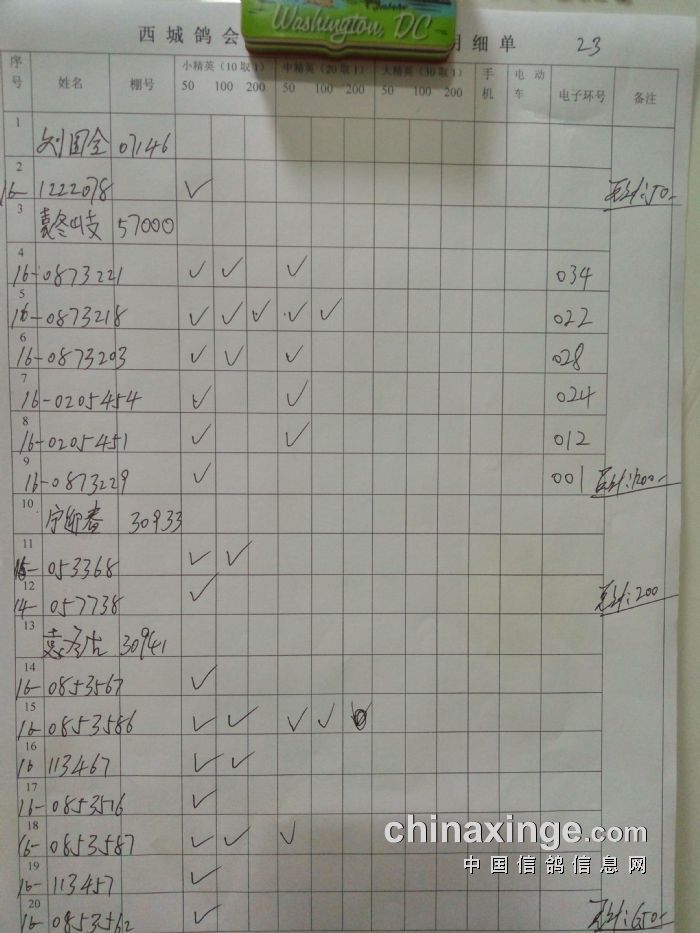 Washington, DC
西城鸽会 明细单 23
序号 姓名 棚号 小精英(10取1) 中精英(20取1) 大精英(30取1) 手机 电动车 电子环号 备注
50 100 200 50 100 200 50 100 200
1 刘国全 07146
2 16-1222078 ✓ 总计:50-
3 袁冬 57000
4 16-0873221 ✓ ✓ ✓ 034
5 16-0873218 ✓ ✓ ✓ ✓ ✓ 022
6 16-0873203 ✓ ✓ ✓ 028
7 16-0205454 ✓ ✓ 024
8 16-0205451 ✓ ✓ 012
9 16-0873229 ✓ 001 总计:1200-
10 宁迎春 30933
11 15-053368 ✓ ✓
12 14-057738 ✓ 总计:200
13 袁 30941
14 16-0853567 ✓
15 16-0853586 ✓ ✓ ✓ ✓
16 16 113467 ✓ ✓
17 16-0853516 ✓
18 16-0853587 ✓ ✓ ✓
19 16-113457 ✓
20 16-0853562 ✓ 总计:650-
chinaxinge.com
中国信鸽信息网